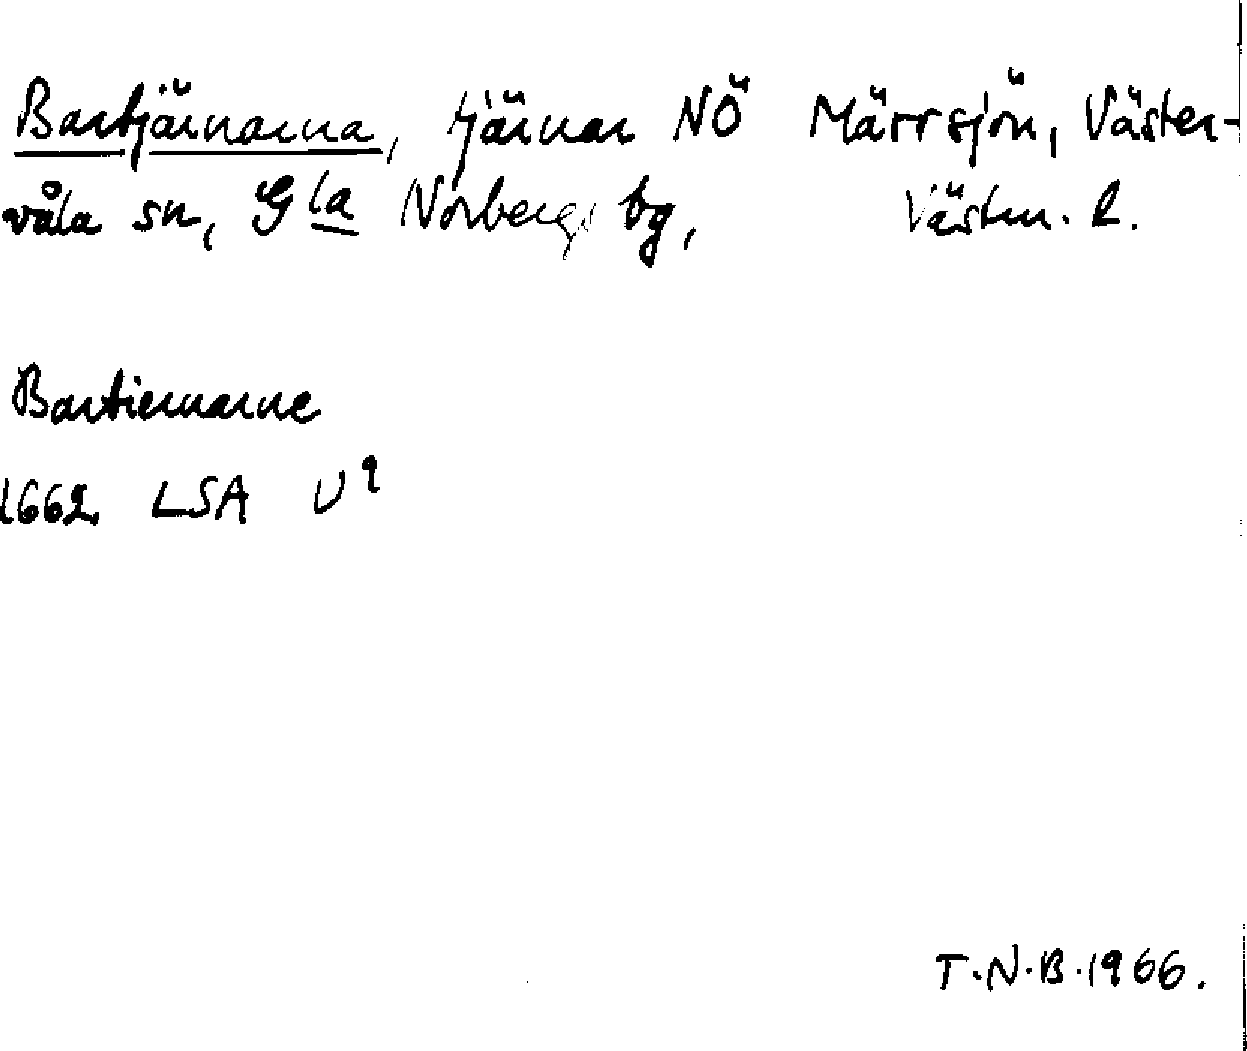 Bartjärnarna, tjärnar NÖ Märrsjön, Väster-
våla sn, Gla Norbergs bg, Västm. l.
Bartiernarne
1662 LSA U9
T.N.B.1966.